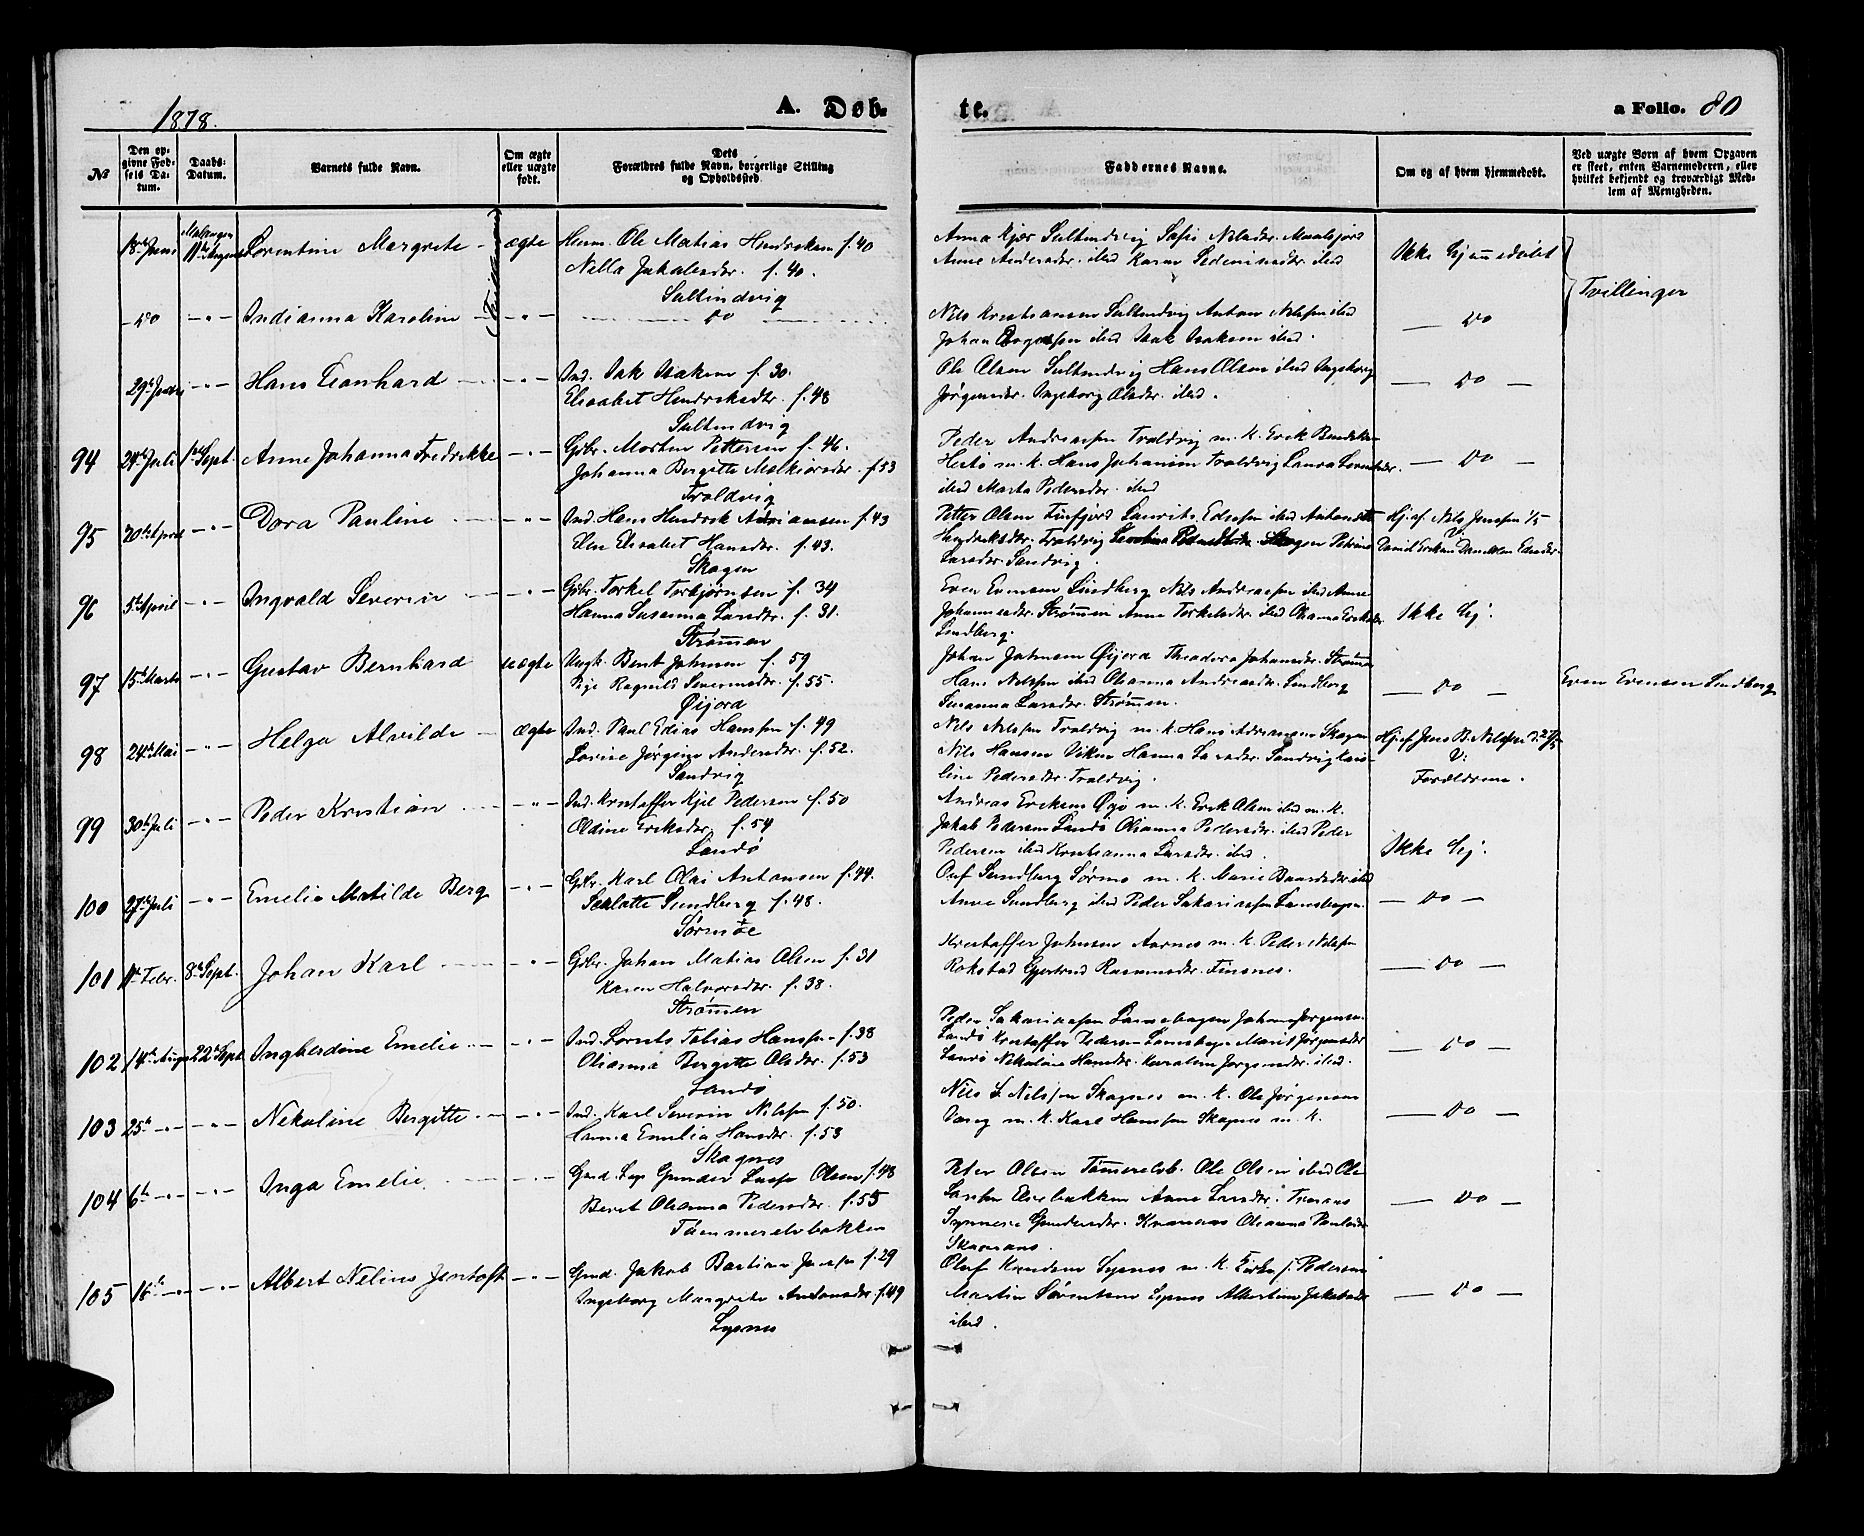 1878.
A. Døb-
te.
a Folio. 80
No
Den opgivne Fødsels Datum.
Daabs-Datum.
Barnets fulde Navn.
Om ægte eller uægte født.
Dets Forældres fulde Navn, borgerlige Stilling og Opholdssted
Faddernes Navne.
Om og af hvem hjemmedøbt.
Ved uægte Børn af hvem Opgaven er skeet, enten Barnemoderen, eller hvilket bekjendt og troværdigt Medlem af Menigheden.
18de Juni Malangen 11te August Lorentine Margrete ægte Huum. Ole Matias Hendriksen f. 40
Nella Jakobsdr. f. 40.
Sultindvig
Ikke hjemmedøbt
Tvillinger
(Tvillinger)
- do - " - Indianna Karoline - " - do
Nils Kristiansen Sultindvig Anton Nilssen ibid
Isak Isaksen ibid.
do
29de - " - Hans Leonhard - " - Ind. Isak Isaksen f. 30.
Elisabet Hendriksdtr. f. 48
Sultindvig
Ole Olsen Sultindvig Hans Olsen ibid Ingeborg
Jørgensdr. Ingeborg Olsdr. ibid.
do
94 24de Juli 1ste Sept. Anne Johanna Fredrikke - " - Gbr. Morten Pettersen f. 46.
Johanna Bergitte Melkiorsdr. f. 53
Troldvig
Peder Andreassen Troldvig m. K. Erik Bendiksen
Hestø m. K. Hans Johansen Troldvig Laura
ibid Marta Pedersdr. ibid
do
95 20de April - " - Dora Pauline - " - Ind. Hans Hendrik Adriansen f. 43
Elen Elisabet Hansdr. f. 43.
Skogen
Petter Olsen Finfjord Laurits Edissen ibid
Hendriksdr. Troldvig
Larsdr. Sandvig.
Hj. af. Nils Jenssen 1/5
96 5te April - " - Ingvald Severin - " - Gbr. Torkel Torbjørnsen f. 34
Hanna Susanna Larsdr. f. 31.
Strømmen
Even Evensen Lindberg Nils Andreassen ibid Anne
Johannesdr. Strømmen Anne Torkelsdr. ibid
Lindberg.
Ikke hj.
97 15de Marts - " - Gustav Bernhard uægte Ungk. Bent Johnsen f. 59
Pige Ragnild Severinsdr. f. 55.
Øijord
Johan Johnsen Øijord Theodora Johansdr. Strømmen
Hans Nilssen ibid Olianna Andreasdr. Lindberg
Susanna Larsdr. Strømmen.
do
Even Evensen Lindberg
98 24de Mai - " - Helga Alvilde ægte Ind. Paul Edias Hanssen f. 49
Lovise Jørgine Andersdr. f. 52.
Sandvig
Nils Nilssen Troldvig m. K. Hans Adriansen Skogen
Nils Hansen Viken Hanna Larsdr. Sandvig Karo-
line Pedersdr. Troldvig.
Hj. af Jens B. Nilssen
V:
Forældrene.
99 30te Juli - " - Peder Kristian - " - Ind. Kristoffer Kjil Pedersen f. 50
Oldine Eriksdr. f. 54
Landø
Andreas Eriksen Øyo m. K. Erik Olsen ibid m. K.
Jakob Pedersen Landø Olianna Pedersdr. ibid Peder
Pedersen ibid Kristianna Larsdr. ibid.
Ikke hj.
100 27de Juli - " - Emelie Matilde Berg - " - Gbr. Karl Olai Antonsen f. 44.
Selotte Sundberg f. 48.
Sørmoe
Oluf Sundberg Sørmo m. K. Marie Baardsdr. ibid
Anne Sundberg ibid Peder Sakariassen
do
101 1te Febr. 8de Sept. Johan Karl - " - Gbr. Johan Matias Olsen f. 31
Karen Halvorsdr. f. 38.
Strømmen
Kristoffer Johnsen Aarnes m. K. Peder Nilssen
Rokstad Gjertrud Rasmusdr. Finsnes.
do
102 14de Aug. 22de Sept. Ingberdine Emelie - " - Ind. Lornts Tobias Hanssen f. 38
Olianna Bergitte Olsdr. f. 53
Landø
Peder Sakariassen Lannebogen Johan Jørgensen
Landø Kristoffer Pedersen Marit Jørgensdr
Landø Nikolaie Hansdr. Karoline Jørgensdr. ibid.
do
103 25de - " - - " - Nekoline Bergitte - " - Ind. Karl Severin Nilssen f. 50.
Hanna Emelia Hansdr. f. 53
Skognes
Nils S. Nilssen Skognes m. K. Ole Jørgensen
m. K. Karl Hanssen Skognes m. K.
do
104 6te - " - - " - Inga Emelie - " - Gmd. Gunder Olsen f. 48
Beret Olianna Pedersdr. f. 55
Tømmerelvbakken
Peter Olsen Tømmerelvb. Ole Olsen ibid Ole
Anne Larsdr. Tranaas
Gundersdr. Olianna
do
105 16de - " - - " - Albert Nelius Jentoft - " - Gmd. Jakob Bastian f. 29
Ingeborg Margrete Antonsdr f. 49
Lysnes
Oluf Knudsen Lysnes m. K. Pedersen
Martin Sørensen Lysnes Albertine Jakobsdr
ibid.
do